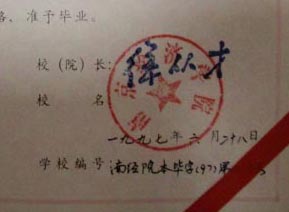 格，准予毕业。
校（院）长：徐从才
南京经济学院
校 名
一九九七年六月二十八日
学校编号：南经院本毕字(97)第